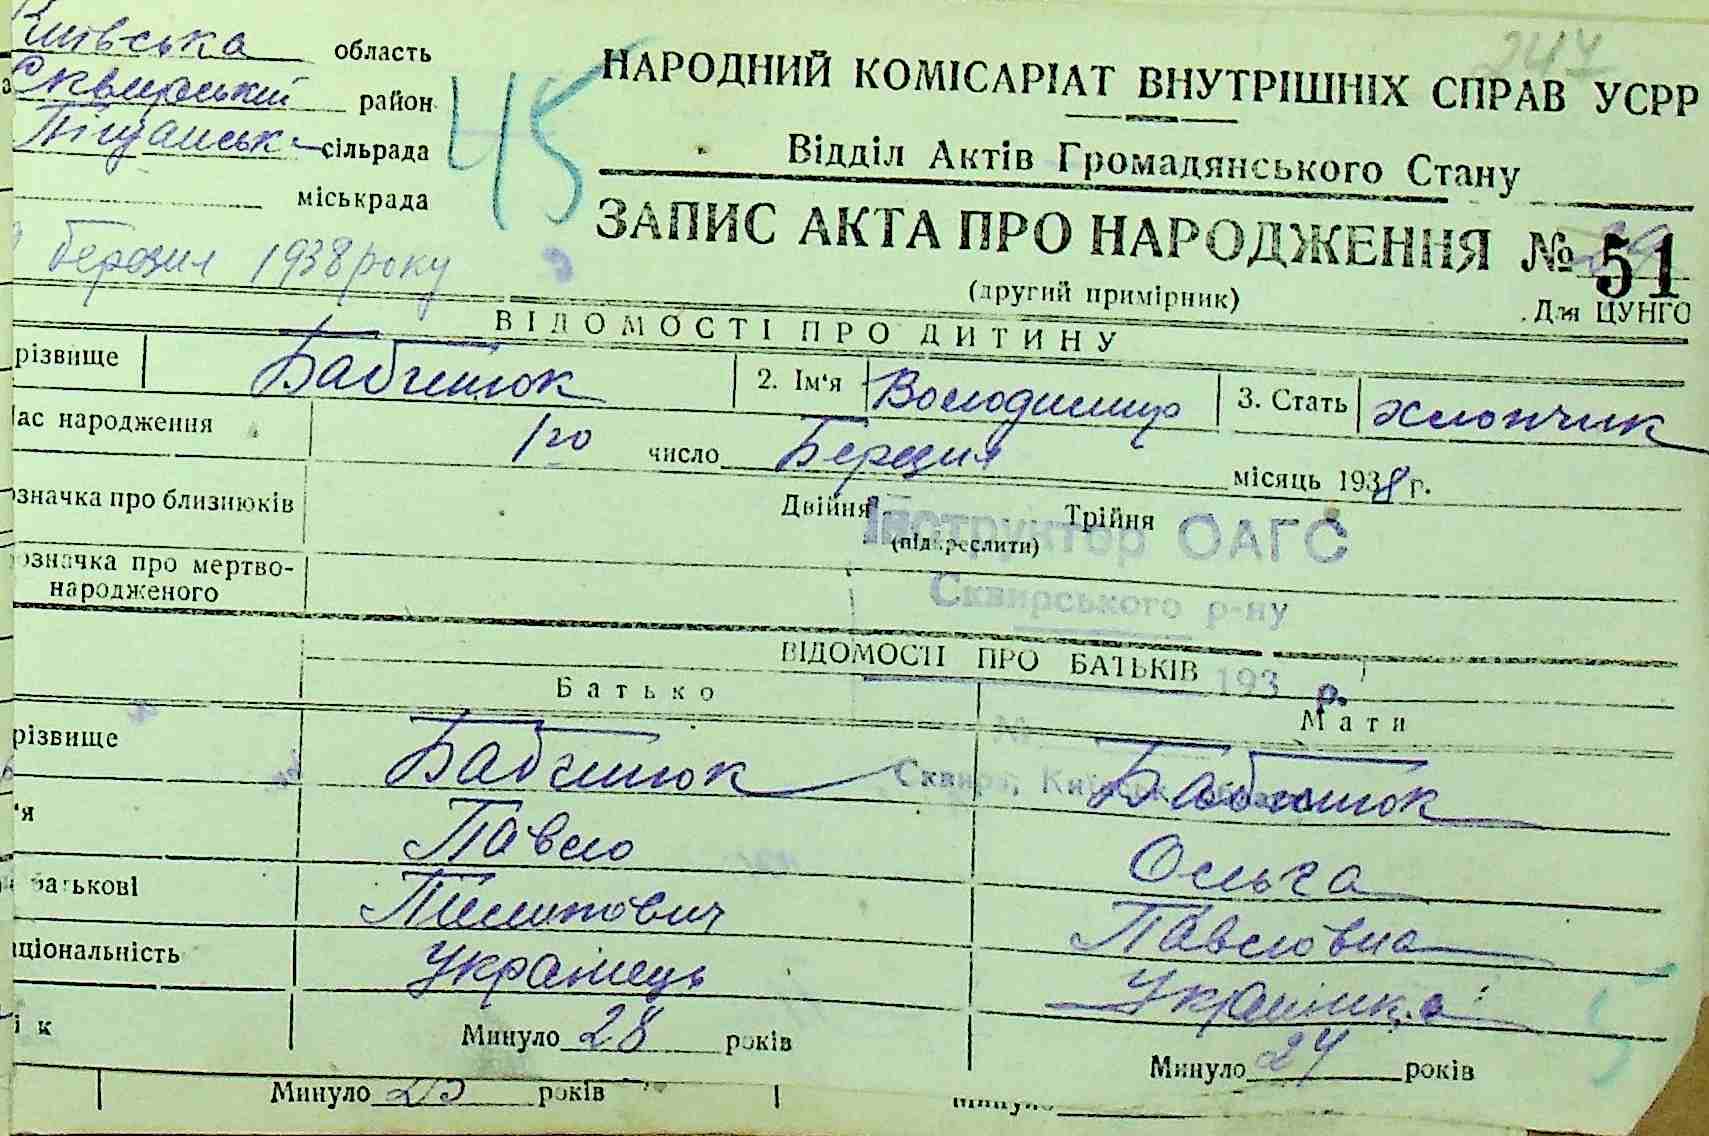 Київська область
Сквирський район
сільрада
міськрада
березня 1938 року
45
247
НАРОДНИЙ КОМІСАРІАТ ВНУТРІШНІХ СПРАВ УСРР
Відділ Актів Громадянського Стану
ЗАПИС АКТА ПРО НАРОДЖЕННЯ № 51
(другий примірник)
Для ЦУНГО
ВІДОМОСТІ ПРО ДИТИНУ
різвище
2. Ім'я Володимир 3. Стать хлопчик
ас народження 1го число Березня місяць 1938 г.
означка про близнюків Двійня Трійня
(підкреслити)
означка про мертво-
народженого
Інструктор ОАГС
Сквирського р-ну
193 р.
№
Сквира, Київськ.
ВІДОМОСТІ ПРО БАТЬКІВ
Батько Мати
різвище
'я Павло Ольга
батькові Пилипович Павловна
аціональність Українець Українка
ік Минуло 28 років Минуло 24 років
Минуло 25 років Минуло